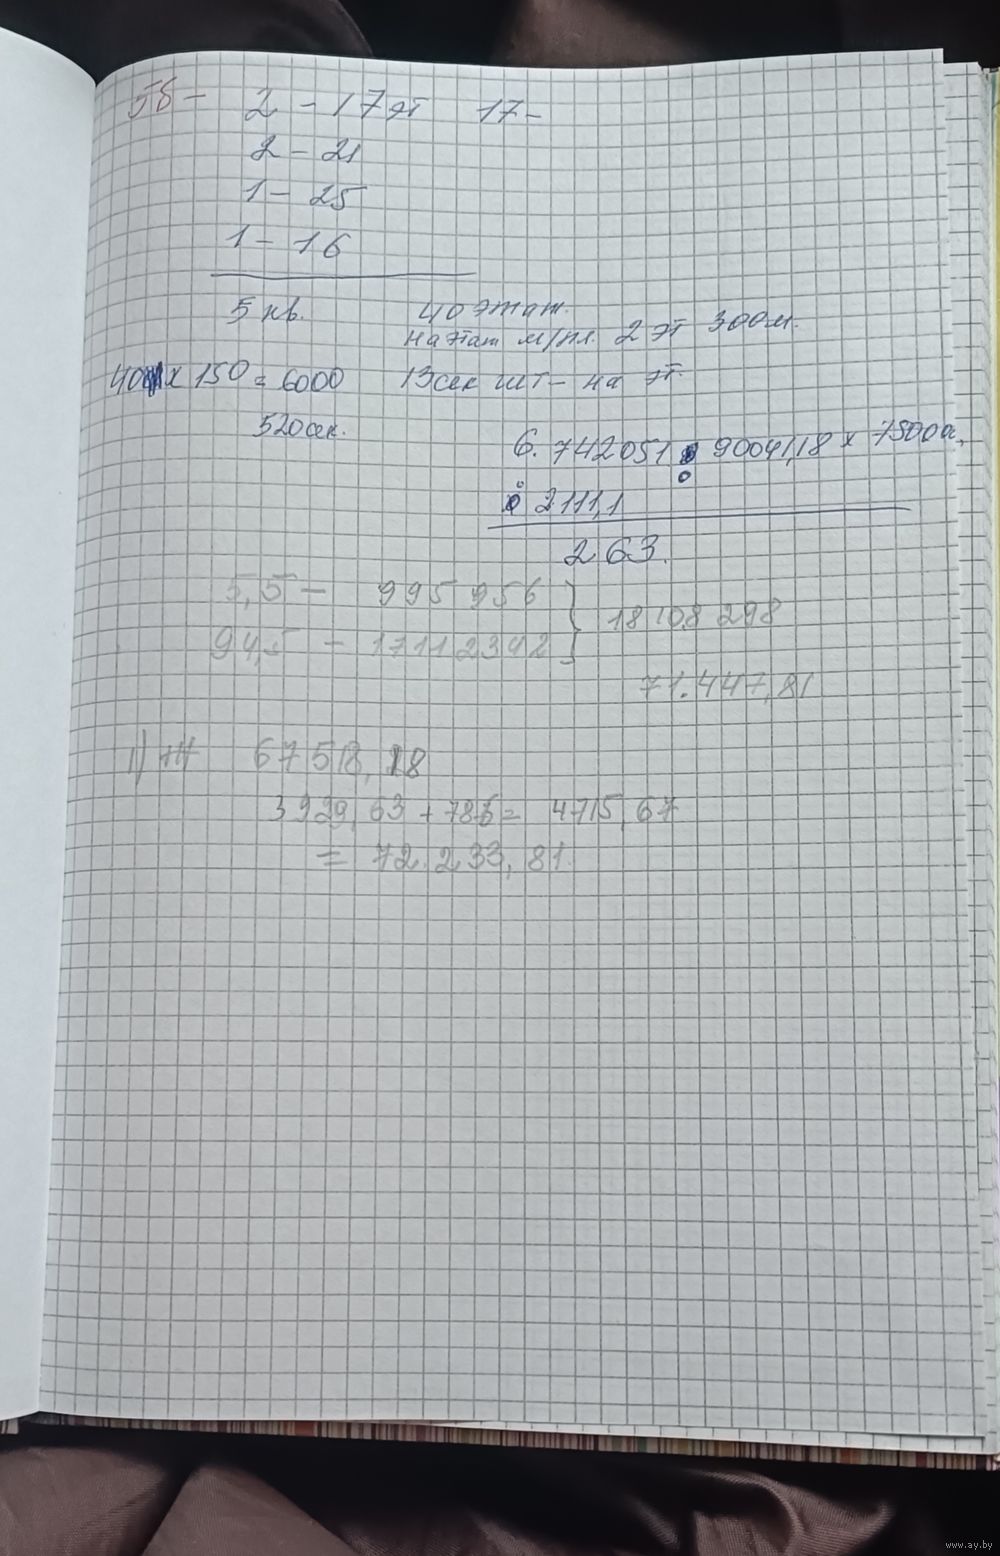 5б - 2 - 17 эт 17 -
2 - 21
1 - 25
1 - 16
5 кв. 40 этаж.
на этаж м/пл. 2 эт 300м.
40 x 150 = 6000 13 сек шт - на эт.
520 сек.
6.742051 : 90041,18 x 7500
: 2111,1
263.
5,5 - 995 956 } 18 108 298
94,5 - 17112342
71.447,81
1) 67518,18
3929,63 + 786 = 4715,67
= 72.233,81.
www.ay.by